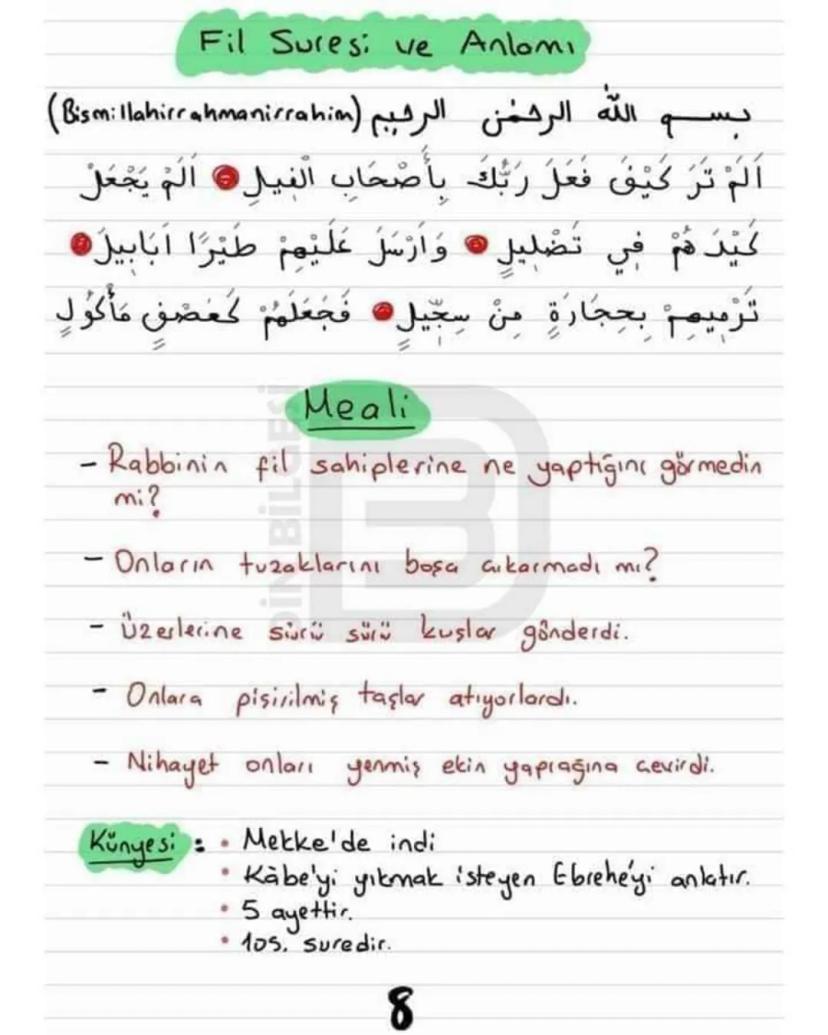 Fil Suresi ve Anlamı
بسم الله الرحمن الرحيم (Bismillahirrahmanirrahim)
اَلَمْ تَرَ كَيْفَ فَعَلَ رَبُّكَ بِأَصْحَابِ الْفِيلِ اَلَمْ يَجْعَلْ
كَيْدَهُمْ فِي تَضْلِيلٍ وَاَرْسَلَ عَلَيْهِمْ طَيْرًا اَبَابِيلَ
تَرْمِيهِمْ بِحِجَارَةٍ مِنْ سِجِّيلٍ فَجَعَلَهُمْ كَعَصْفٍ مَأْكُولٍ
Meali
- Rabbinin fil sahiplerine ne yaptığını görmedin
mi?
- Onların tuzaklarını boşa çıkarmadı mı?
- Üzerlerine sürü sürü kuşlar gönderdi.
- Onlara pişirilmiş taşlar atıyorlardı.
- Nihayet onları yenmiş ekin yaprağına çevirdi.
Künyesi : • Mekke'de indi
• Kâbe'yi yıkmak isteyen Ebrehe'yi anlatır.
• 5 ayettir.
• 105. suredir.
8
DİN BİLGESİ